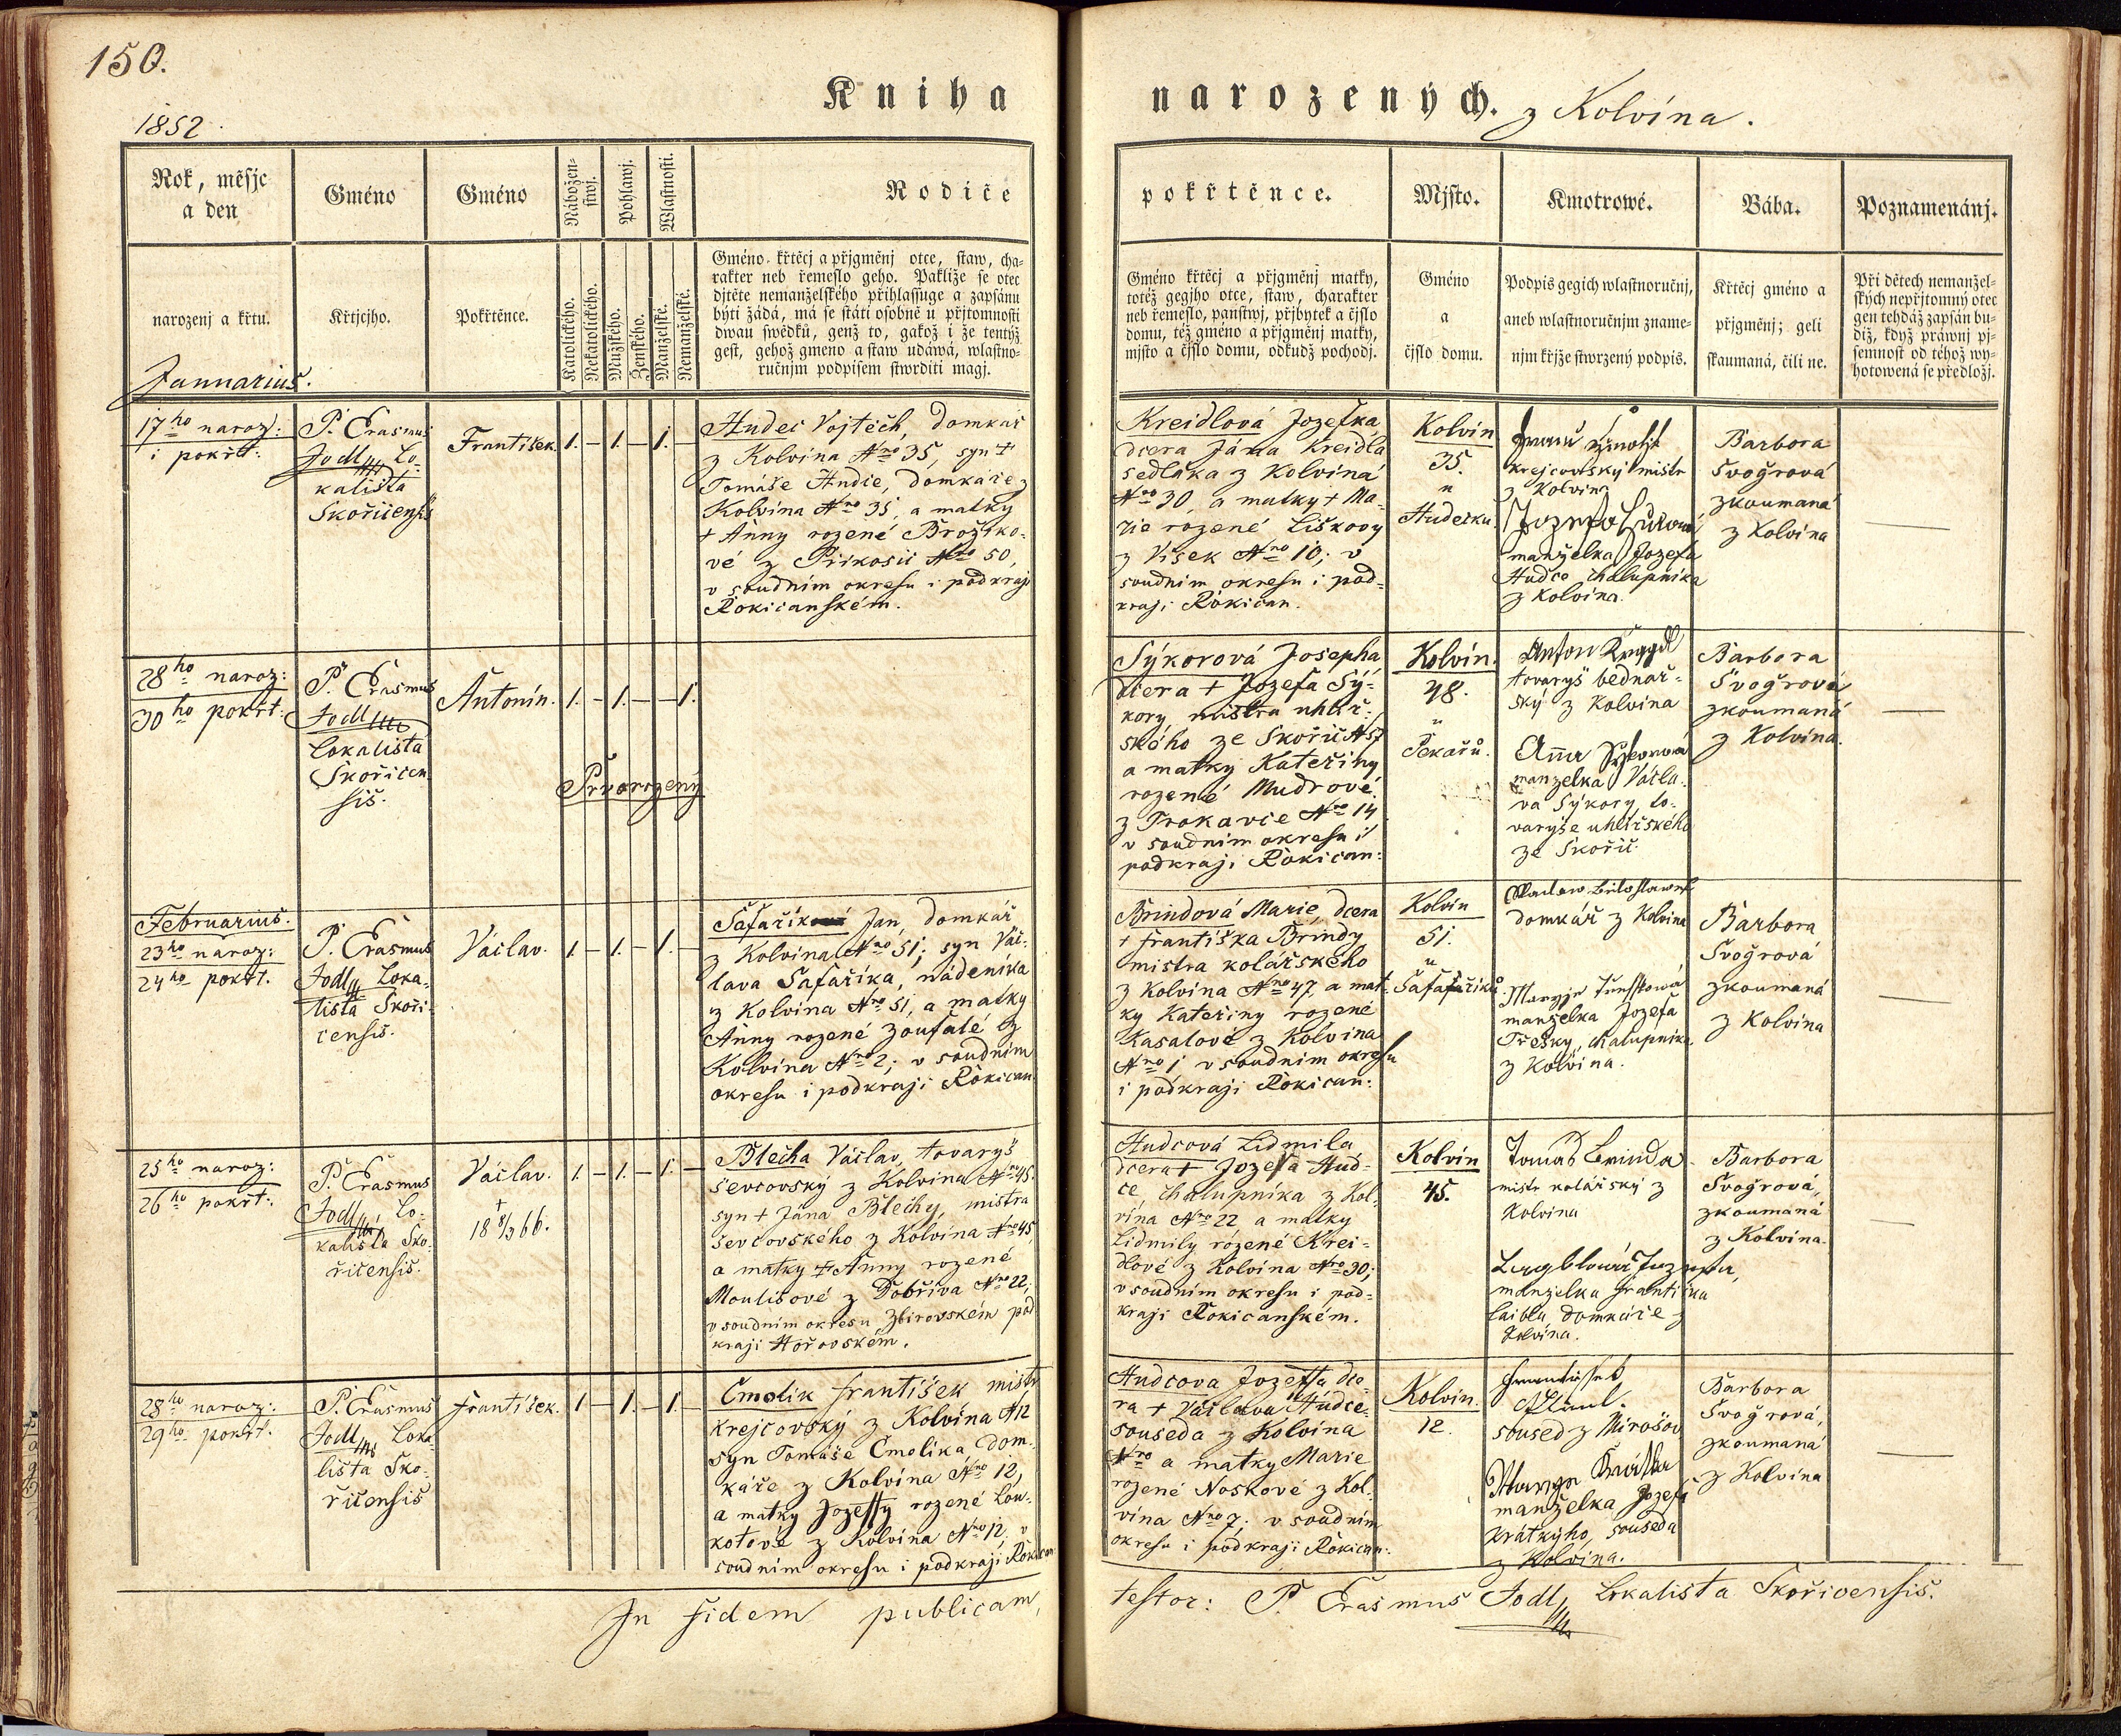 150.
1852.
Kniha
narozených. z Kolvína.
Rok, měsjc
a den
narozenj a křtu.
Januarius.
Gméno
Křtjcjho.
Gméno
Pokřtěnce.
Nábožen-
stwj.
Katolického.
Nekatolického.
Pohlawj.
Mužského.
Ženského.
Wlastnosti.
Manželské.
Nemanželské.
Rodiče
Gméno křtěcj a přjgměnj otce, staw, cha-
rakter neb řemeslo geho. Pakliže se otec
djtěte nemanželského přihlassuge a zapsánu
býti žádá, má se státi osobně u přjtomnosti
dwau swědků, genž to, gakož i že tentýž
gest, gehož gmeno a staw udáwá, wlastno-
ručnjm podpisem stwrditi magj.
pokřtěnce.
Gméno křtěcj a přjgměnj matky,
totéž gegjho otce, staw, charakter
neb řemeslo, panstwj, přjbytek a čjslo
domu, též gméno a přjgměnj matky,
mjsto a čjslo domu, odkudž pochodj.
Mjsto.
Gméno
a
čjslo domu.
Kmotrowé.
Podpis gegich wlastnoručnj,
aneb wlastnoručnjm zname-
njm křjže stwrzený podpis.
Bába.
Křtěcj gméno a
přjgměnj; geli
skaumaná, čili ne.
Poznamenánj.
Při dětech nemanžel-
ských nepřjtomný otec
gen tehdáž zapsán bu-
diž, když práwnj pj-
semnost od téhož wy-
hotowená se předložj.
17ho naroz:
i pokřt:
P. Erasmus
Jodl, Lo-
kalista
Skořicensis
František.
1. – 1. – 1. –
Hudec Vojtěch, domkář
z Kolvína Nro 35, syn +
Tomáše Hudce, domkáře z
Kolvína Nro 35, a matky
+ Anny rozené Brožko-
vé z Příkosic Nro 50,
v soudním okresu i podkraji
Rokicanském.
Kreidlová Jozefka,
dcera Jána Kreidla
sedláka z Kolvína
Nro 30, a matky + Ma-
rie rozené Liškovy
z Vísek Nro 10; v
soudním okresu i pod-
kraji Rokican.
Kolvín
35.
u
Hudečku.
krejcovský mistr
z Kolvína
manželka Jozefa
Hudce chalupníka
z Kolvína.
Barbora
Švogrová
zkoumaná
z Kolvína
28ho naroz:
30ho pokřt:
P. Erasmus
Jodl
Lokalista
Skořicen-
sis.
Antonín.
1. – 1. – – 1.
Prvorozený
Sýkorová Josepha
dcera + Jozefa Sý-
kory mistra uhlíř-
ského ze Skořič N 57
a matky Kateřiny
rozené Mudrové
z Trokavce Nro 14
v soudním okresu i
podkraji Rokican:
Kolvín.
48.
u
Pekařů.
Anton
tovaryš bednář-
ský z Kolvína
Anna Sýkorová
manzelka Václa-
va Sýkory, to-
varyše uhlířského
ze Skořič
Barbora
Švogrová
zkoumaná
z Kolvína.
Februarius.
23ho naroz:
24ho pokřt.
P. Erasmus
Jodl, Loka-
lista Skoři-
censis.
Václav.
1. – 1. – 1. –
Šafařík Jan, domkář
z Kolvína Nro 51; syn Vác-
lava Šafaříka, nádeníka
z Kolvína Nro 51, a matky
Anny rozené Zoufalé z
Kolvína Nro 2; v soudním
okresu i podkraji Rokican.
Brindová Marie, dcera
+ Františka Brindy
mistra kolářského
z Kolvína Nro 47, a mat-
ky Kateřiny rozené
Kasalové z Kolvína
Nro 1 v soudním okresu
i podkraji Rokican:
Kolvín
51.
u
Šafaříků.
domkář z Kolvína
manželka Jozefa
Třesky, chalupníka
z Kolvína.
Barbora
Švogrová
zkoumaná
z Kolvína
25ho naroz:
26ho pokřt:
P. Erasmus
Jodl, Lo-
kalista Sko-
řicensis.
Václav.
+
18 8/3 66.
1. – 1. – 1. –
Blecha Václav, tovaryš
ševcovský z Kolvína Nro 45.
syn + Jána Blechy, mistra
ševcovského z Kolvína Nro 45,
a matky + Anny rozené
Moulisové z Dobříva Nro 22;
v soudním okresu Zbirovském pod
kraji Hořovském.
Hudcová Lidmila
dcera + Jozefa Hud-
ce, chalupníka z Kol-
vína Nro 22 a matky
Lidmily rozené Krei-
dlové z Kolvína Nro 30;
v soudním okresu i pod-
kraji Rokicanském.
Kolvín
45.
Tomas Brinda
mistr kolářský z
Kolvína
manželka Františka
Laibla, domkáře z
Kolvína.
Barbora
Švogrová,
zkoumaná
z Kolvína.
28ho naroz:
29ho pokřt.
P. Erasmus
Jodl, Loka-
lista Sko-
řicensis
František.
1 – 1. – 1. –
Čmolík František mistr
krejcovský z Kolvína N 12
syn Tomáše Čmolíka dom-
káře z Kolvína Nro 12,
a matky Jozeffy rozené Lou-
kotové z Kolvína Nro 12, v
soudním okresu i podkraji Rokican:
Hudcova Jozeffa dce-
ra + Václava Hudce
souseda z Kolvína
Nro a matky Marie
rozené Noskové z Kol-
vína Nro 7; v soudním
okresu i podkraji Rokican:
Kolvín.
12.
soused z Mirošov
manželka Jozefa
Krátkýho, souseda
z Kolvína.
Barbora
Švogrová,
zkoumaná
z Kolvína
In fidem publicam,
testor: P. Erasmus Jodl, Lokalista Skořicensis.